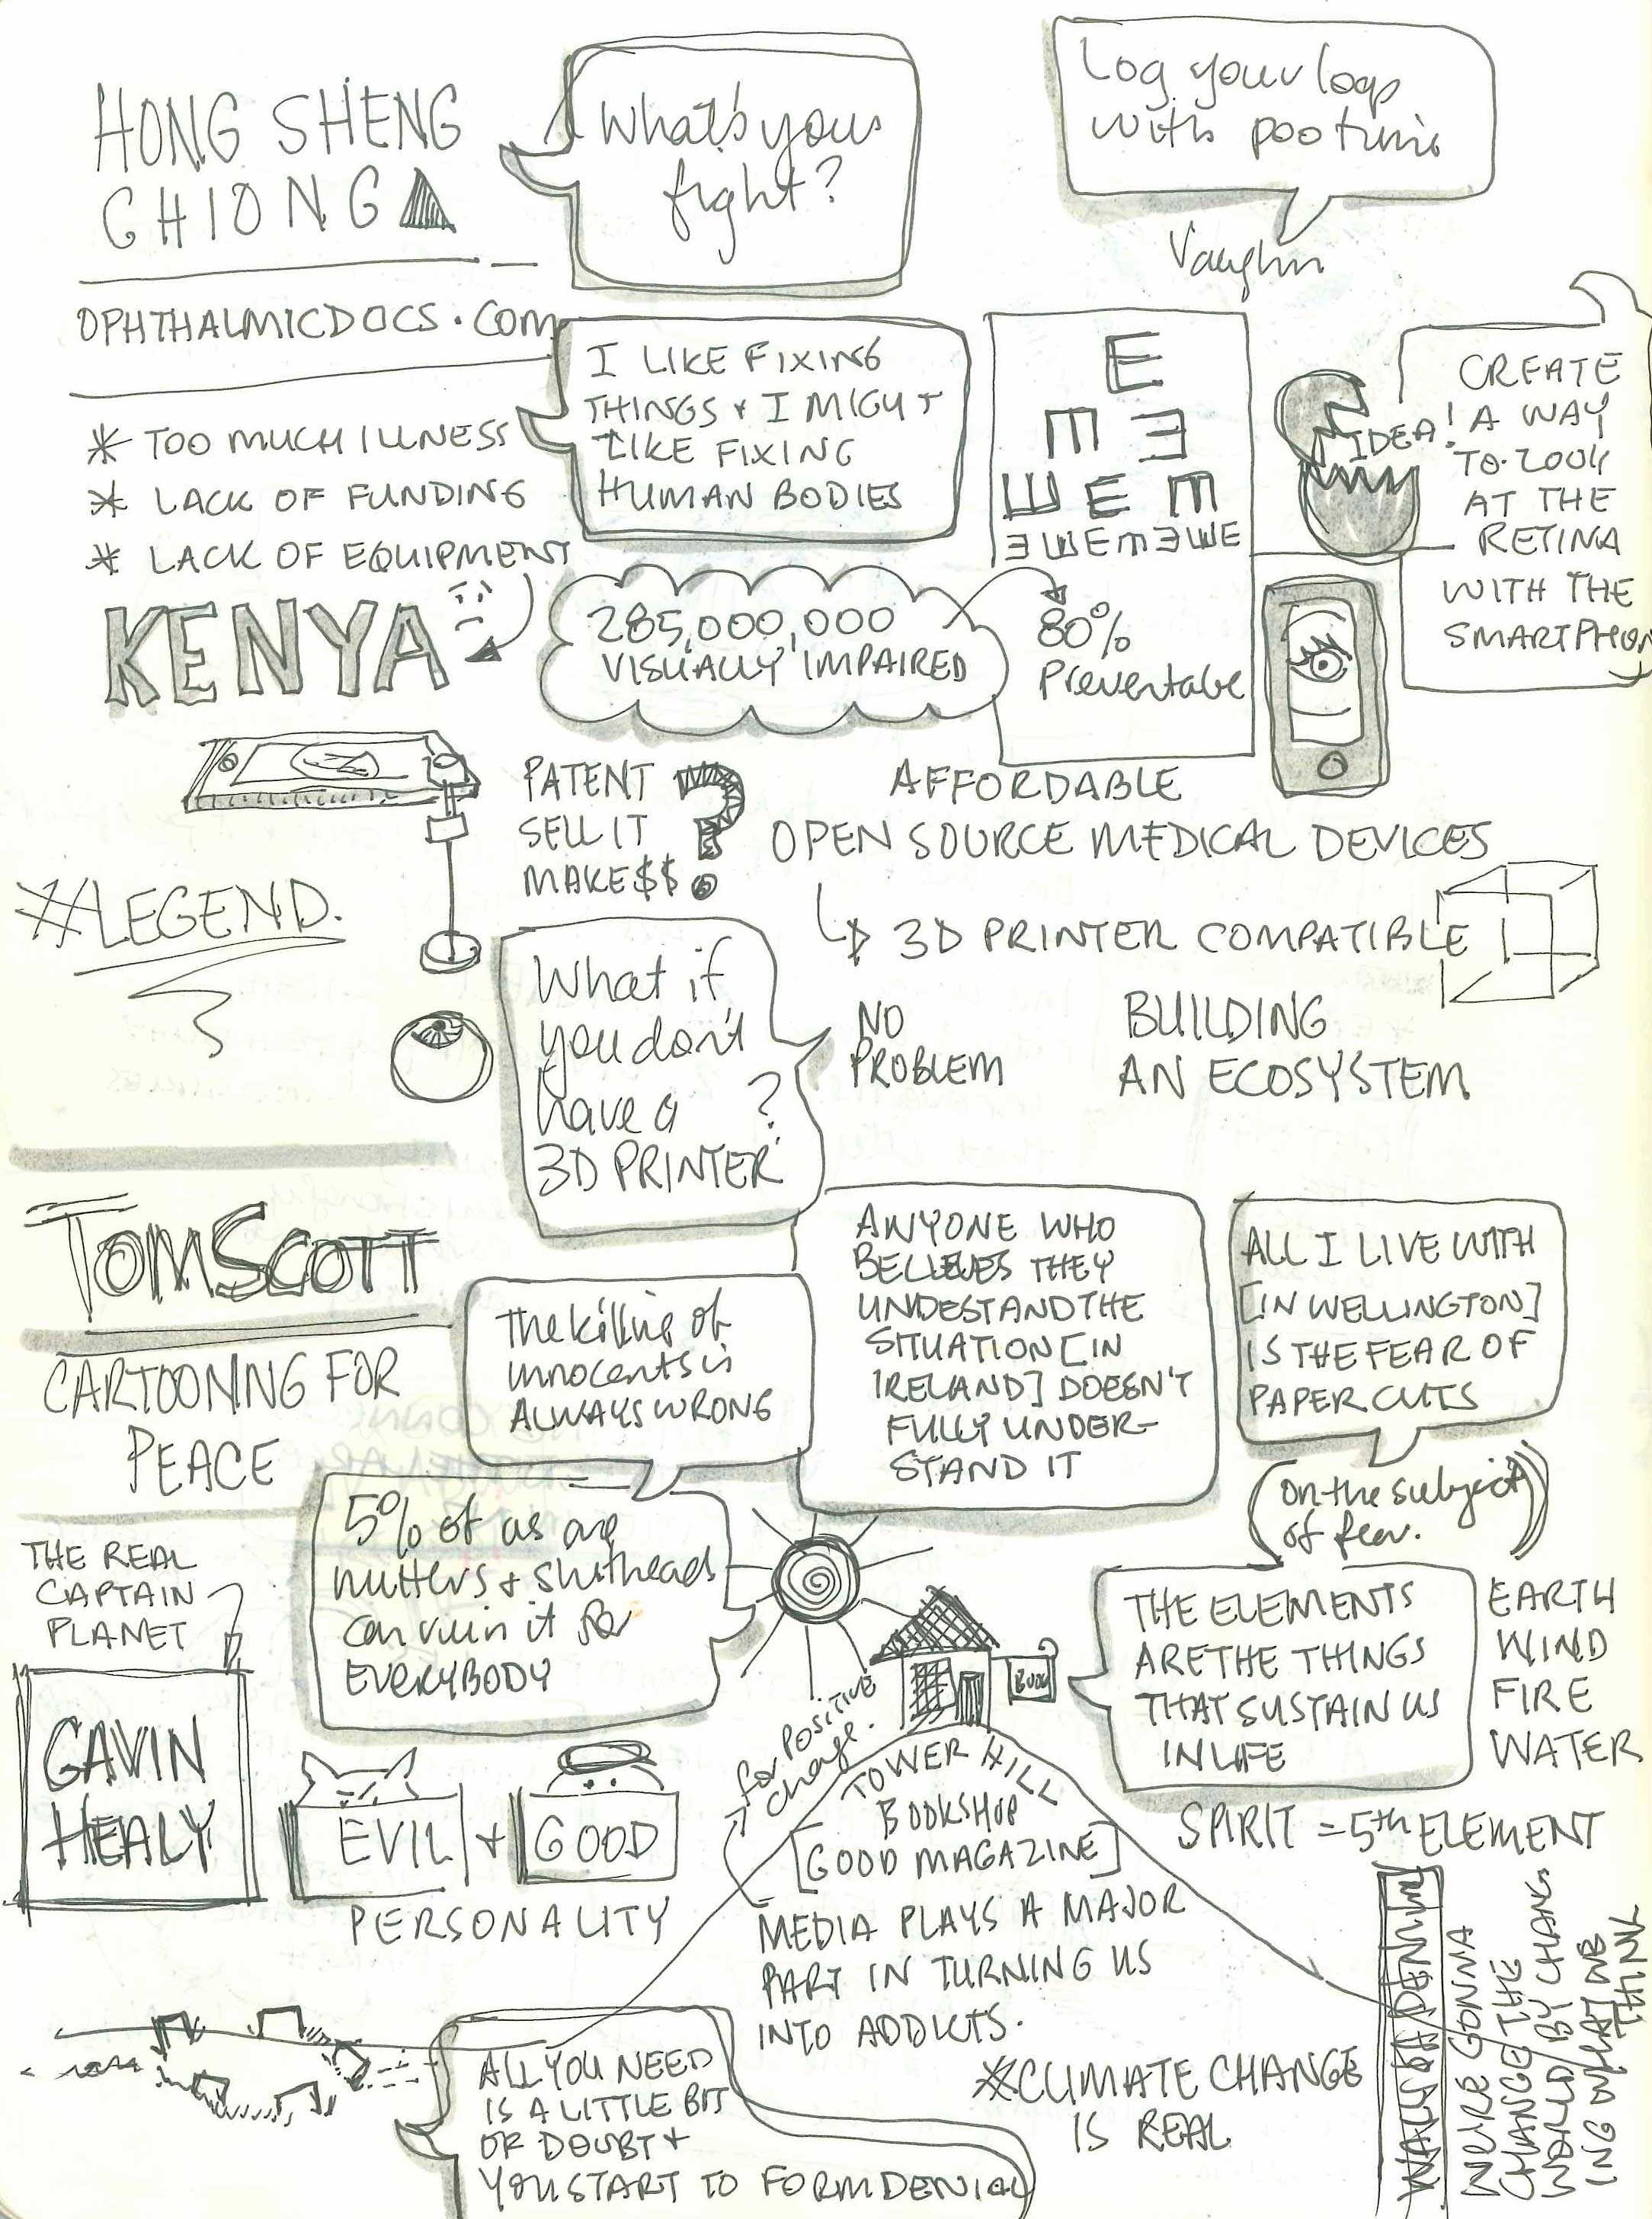 HONG SHENG
CHIONG
What's your
fight?
Log your logs
with pootunia
Vaughn
OPHTHALMICDOCS.COM
I LIKE FIXING
THINGS + I MIGHT
LIKE FIXING
HUMAN BODIES
* TOO MUCH ILLNESS
* LACK OF FUNDING
* LACK OF EQUIPMENT
KENYA
285,000,000
VISUALLY IMPAIRED
E
80%
Preventable
IDEA!
CREATE
A WAY
TO LOOK
AT THE
RETINA
WITH THE
SMARTPHON
PATENT
SELL IT
MAKE $$
?
AFFORDABLE
OPEN SOURCE MEDICAL DEVICES
3D PRINTER COMPATIBLE
#LEGEND.
What if
you don't
have a ?
3D PRINTER
NO
PROBLEM
BUILDING
AN ECOSYSTEM
TOM SCOTT
CARTOONING FOR
PEACE
The killing of
innocents is
ALWAYS WRONG
ANYONE WHO
BELIEVES THEY
UNDESTAND THE
SITUATION [IN
IRELAND] DOESN'T
FULLY UNDER-
STAND IT
ALL I LIVE WITH
[IN WELLINGTON]
IS THE FEAR OF
PAPER CUTS
(on the subject
of fear.)
5% of us are
nutters + shitheads
can ruin it for
EVERYBODY
THE REAL
CAPTAIN
PLANET
GAVIN
HEALY
EVIL + GOOD
PERSONALITY
BOOK
TOWER HILL
BOOKSHOP
[GOOD MAGAZINE]
for POSITIVE
change.
MEDIA PLAYS A MAJOR
PART IN TURNING US
INTO ADDICTS.
THE ELEMENTS
ARE THE THINGS
THAT SUSTAIN US
IN LIFE
EARTH
WIND
FIRE
WATER
SPIRIT = 5th ELEMENT
ALL YOU NEED
IS A LITTLE BIT
OF DOUBT +
YOU START TO FORM DENIAL
*CLIMATE CHANGE
IS REAL
WE'RE GONNA
CHANGE THE
WORLD BY CHANG
ING WHAT WE
THINK